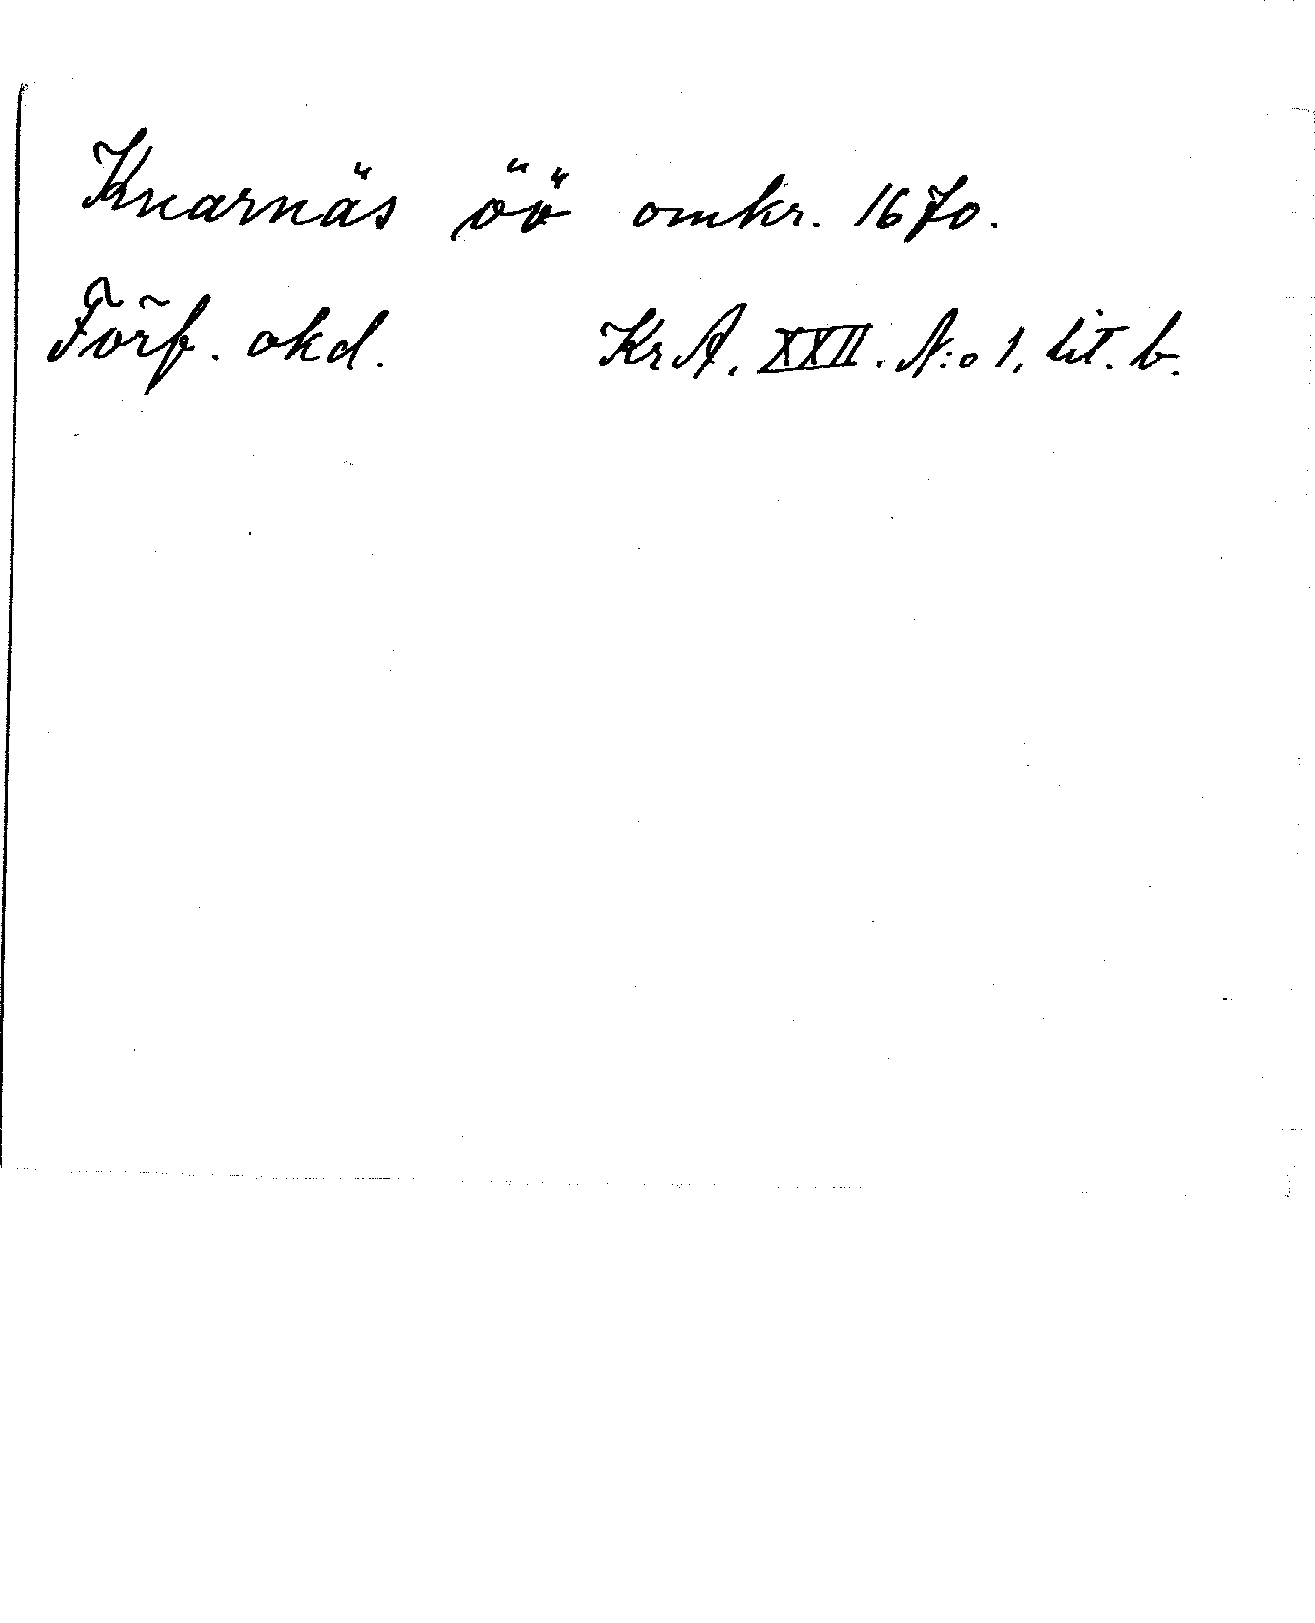 Knarnäs öö omkr. 1670.
Förf. okd. KrA. XXII. N:o 1, lit. b.